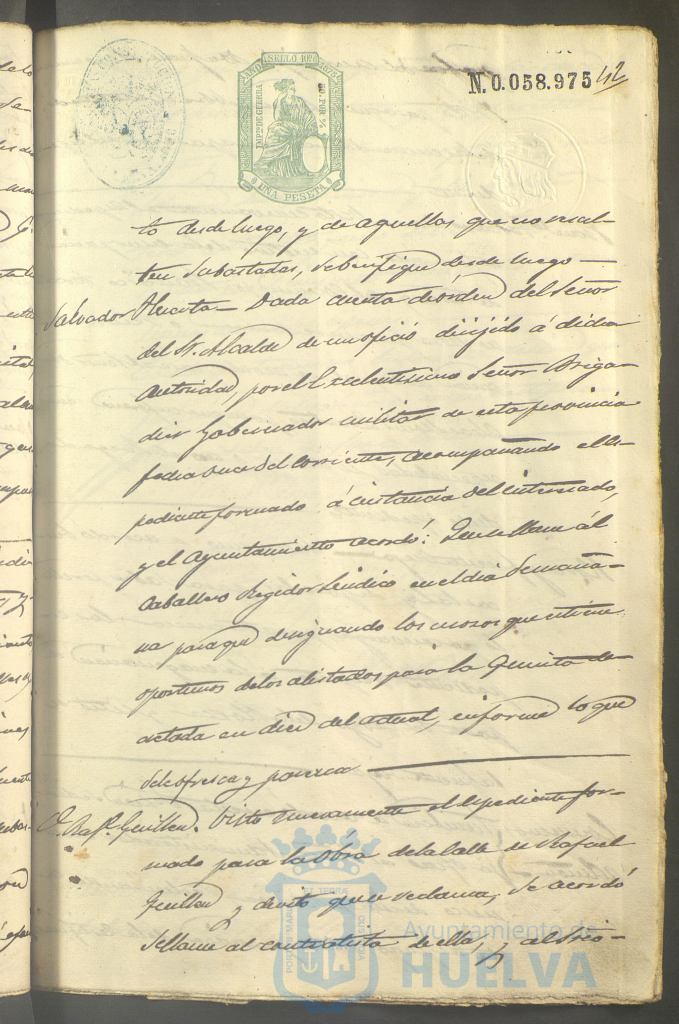 N. 0.058.975
42
AÑO SELLO 10º 1875
IMPTO DE GUERRA
50. POR %
UNA PESETA
to desde luego, y de aquellas que no resul-
ten subastadas, se benefique desde luego —
Salvador Huerta — Dada cuenta de órden del Señor
del Sr. Alcalde de un oficio dirijido á dicha
autoridad, por el Excelentisimo Señor Briga-
dier Gobernador militar de esta provincia
fecha once del corriente, acompañando el es-
pediente formado á instancia del interesado,
y el Ayuntamiento acordó: Que se llame al
Caballero Regidor Sindico en el dia de maña-
na para que designando los mozos que estime
oportunos de los alistados para la Quinta de-
cretada en diez del actual, informe lo que
se le ofrezca y parezca
D. Rafl. Guillen. Visto nuevamente el espediente for-
mado para la obra de la Calle de Rafael
Guillen y de esto que se reclama, se acordó
se llame al contratista de ella, y al Sr.
PORTUS MARIS
ET TERRÆ
CUSTODIA
Ayuntamiento de
HUELVA